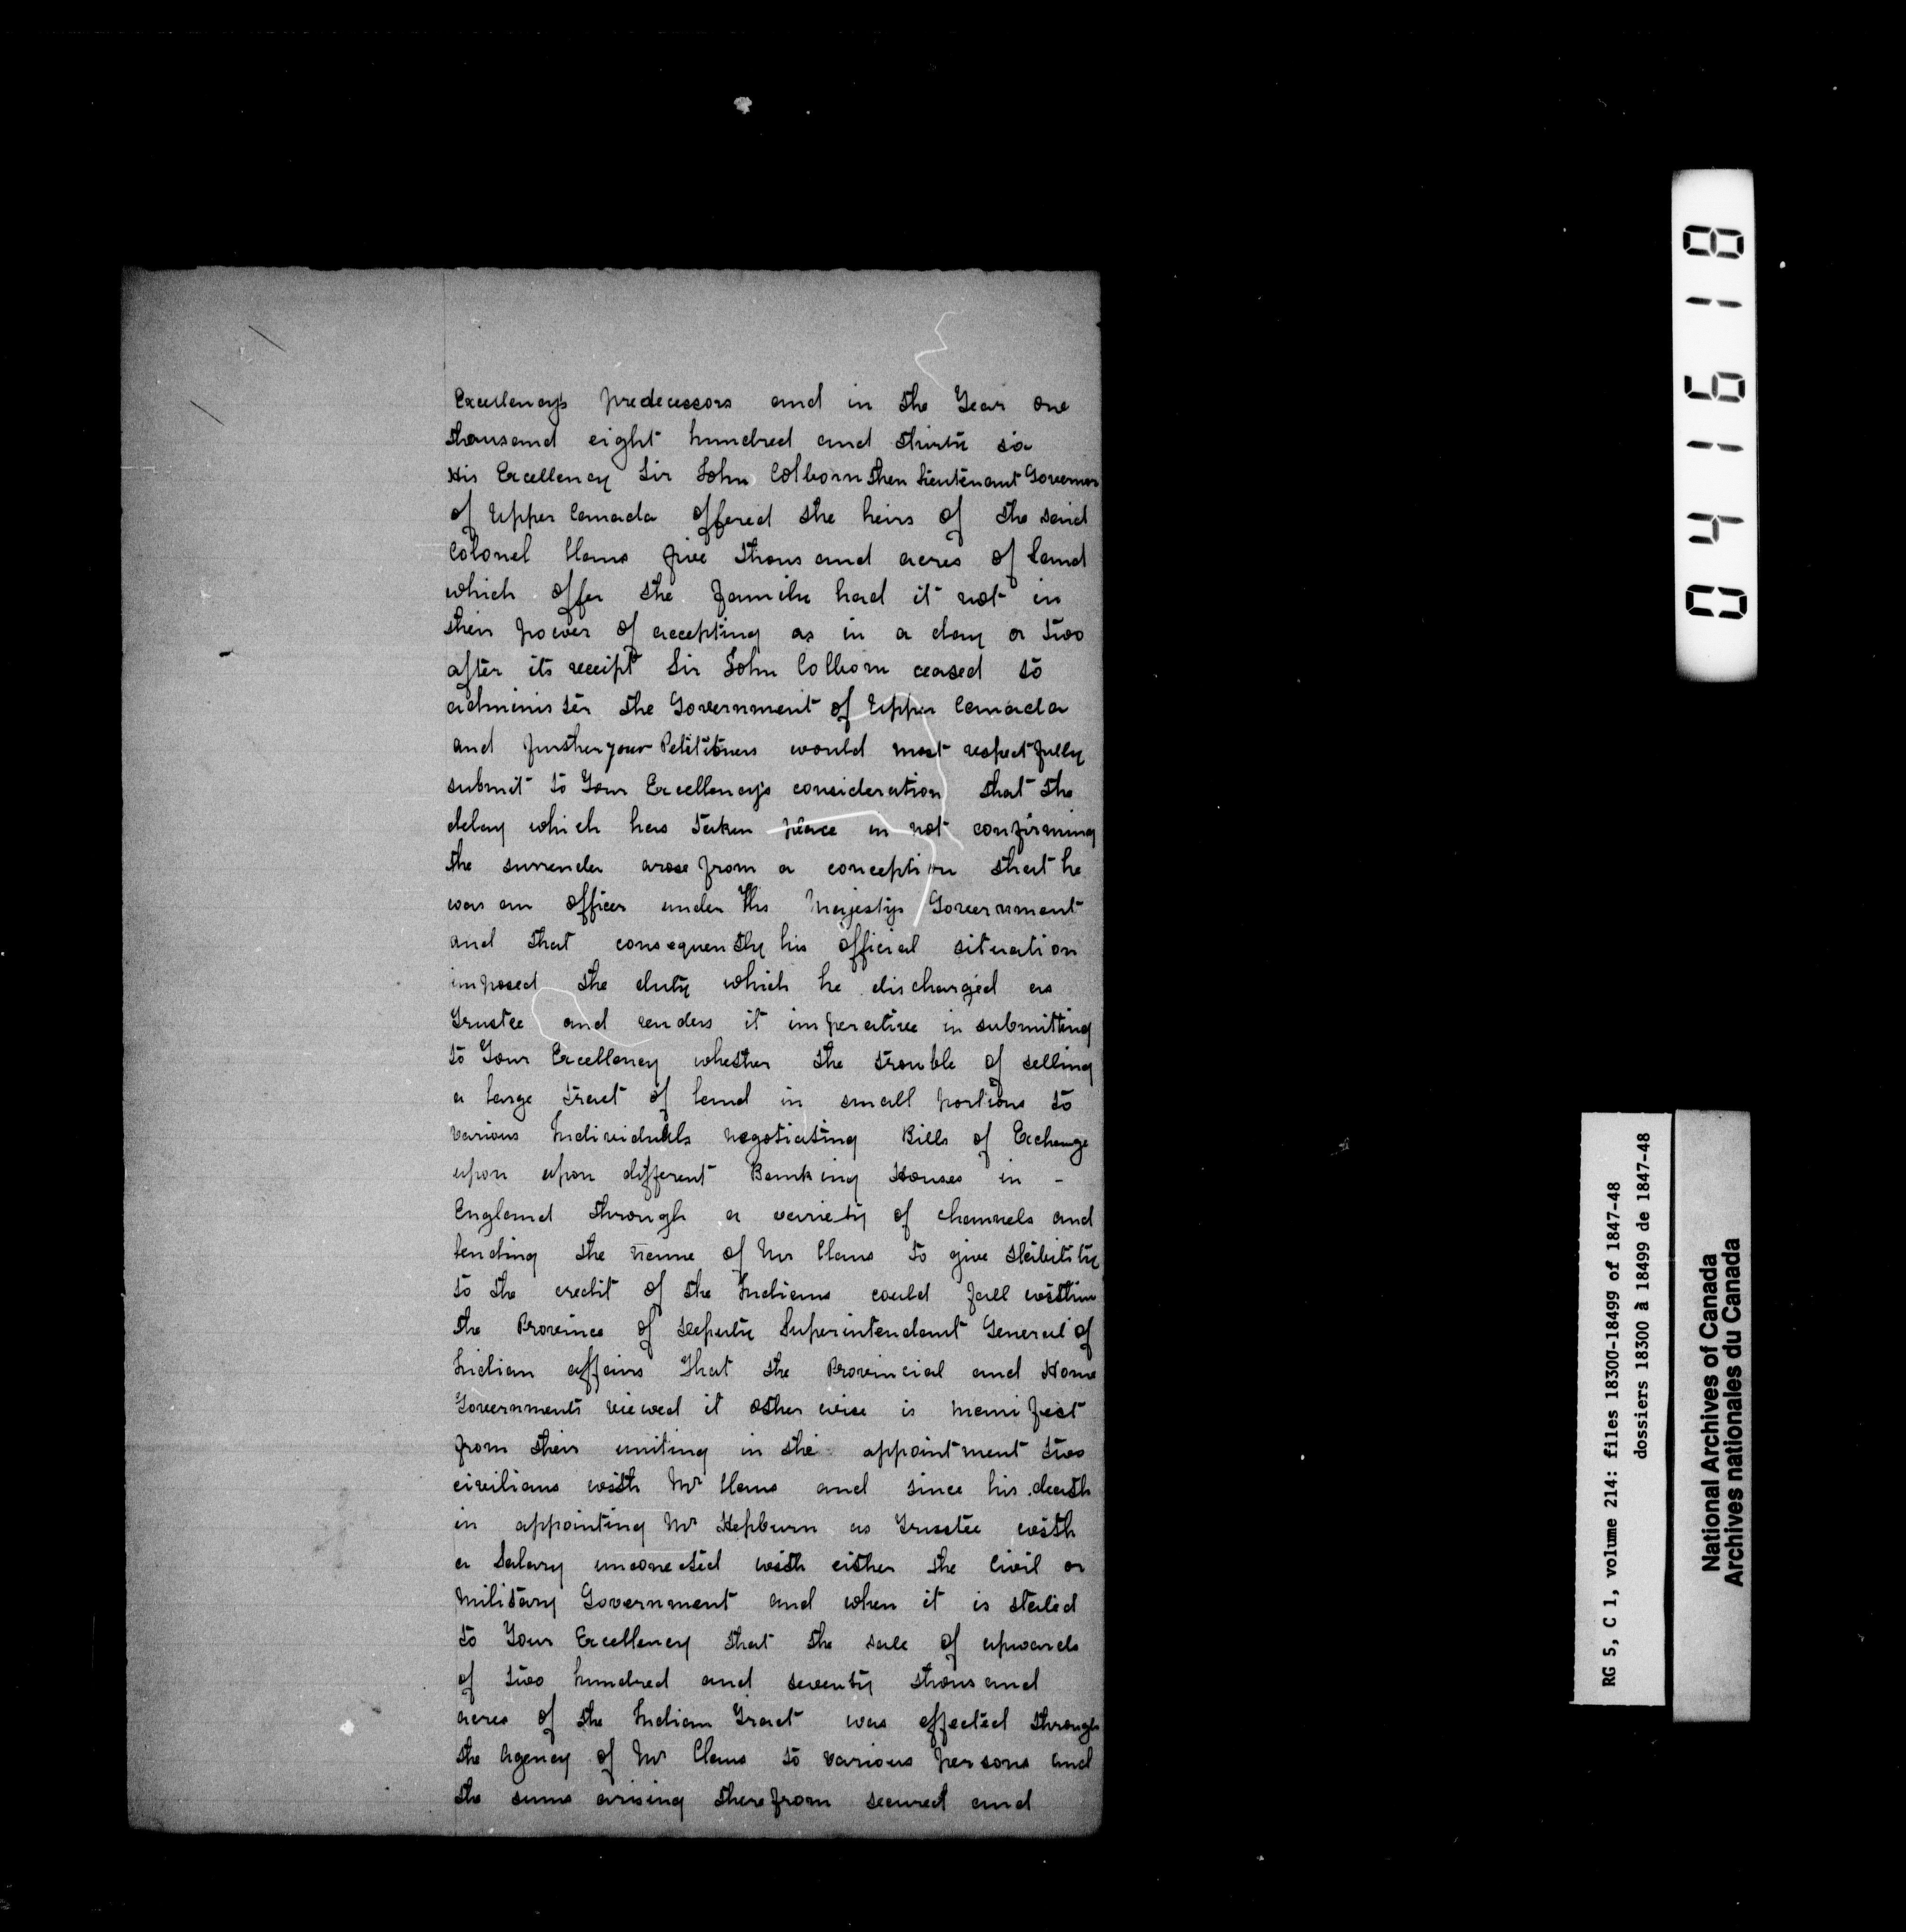 Excellency's predecessors and in the Year one
thousand eight hundred and thirty six
His Excellency Sir John Colborn then Lieutenant Governor
of Upper Canada offered the heirs of the said
Colonel Claus five thousand acres of land
which offer the family had it not in
their power of accepting as in a day or two
after its receipt Sir John Colborn ceased to
administer the Government of Upper Canada
and further your Petitioners would most respectfully
submit to Your Excellency's consideration that the
delay which has taken place in not confirming
the surrender arose from a conception that he
was an officer under His Majestys Government
and that consequently his official situation
imposed the duty which he discharged as
Trustee and renders it imperative in submitting
to Your Excellency whether the trouble of selling
a large tract of land in small portions to
various Individuals negotiating Bills of Exchange
upon upon different Banking Houses in -
England through a variety of channels and
lending the name of Mr Claus to give stability
to the credit of the Indians could fall within
the Province of Deputy Superintendant General of
Indian affairs That the Provincial and Home
Governments viewed it other wise is manifest
from their uniting in the appointment two
civilians with Mr Claus and since his death
in appointing Mr Hepburn as Trustee with
a Salary unconected with either the Civil or
Military Government and when it is stated
to Your Excellency that the sale of upwards
of two hundred and seventy thousand
acres of the Indian Tract was effected through
the Agency of Mr Claus to various persons and
the sums arising therefrom secured and
041618
RG 5, C 1, volume 214: files 18300-18499 of 1847-48
dossiers 18300 à 18499 de 1847-48
National Archives of Canada
Archives nationales du Canada